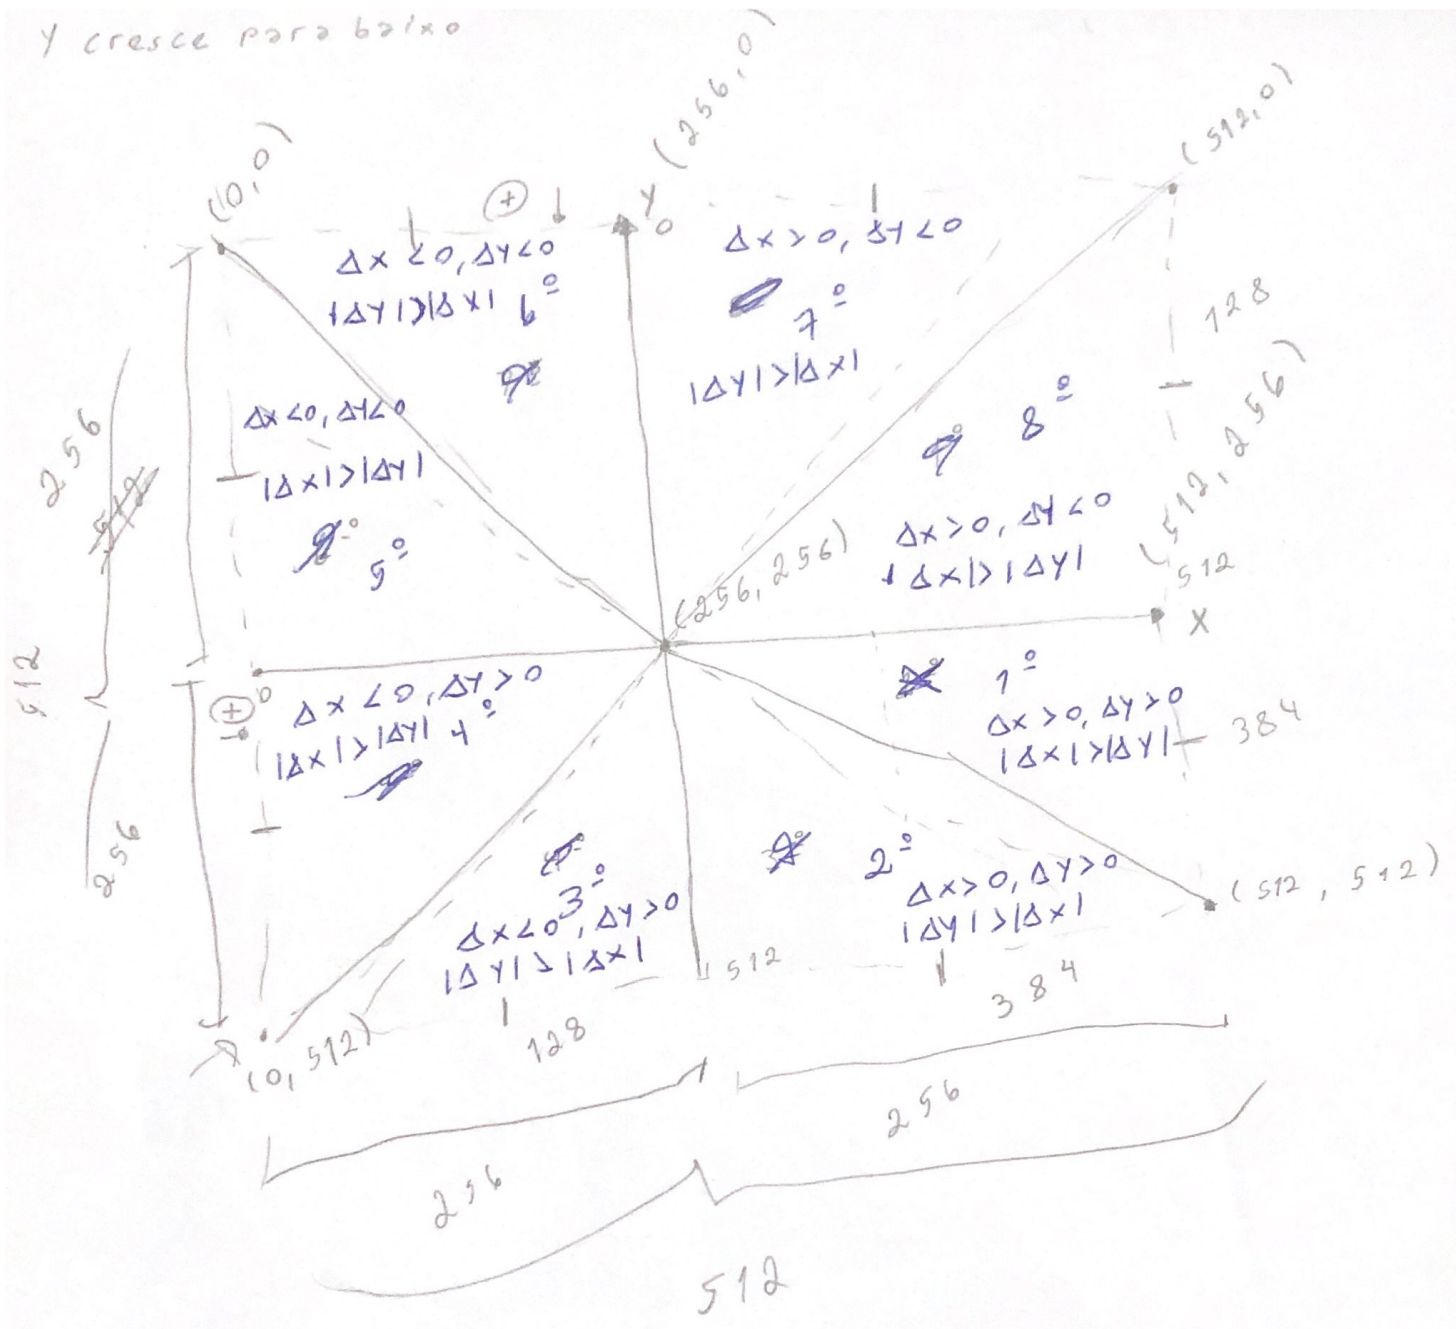 Y cresce para baixo
(0,0)
Y (256,0)
(512,0)
+
0
Δx <0, ΔY<0
|ΔY|>|ΔX| 6º
Δx >0, ΔY <0
7º
|ΔY|>|Δx|
128
8º
Δx >0, ΔY <0
|Δx|>|ΔY|
(512, 256)
512
X
256
Δx <0, ΔY<0
|Δx|>|ΔY|
5º
(256,256)
512
+
0
Δx <0, ΔY>0
|Δx|>|ΔY| 4º
1º
Δx >0, ΔY >0
|Δx|>|ΔY|
384
256
3º
Δx<0, ΔY>0
|ΔY|>|Δx|
2º
Δx>0, ΔY>0
|ΔY|>|Δx|
(512, 512)
512
(0,512)
128
384
256
256
512